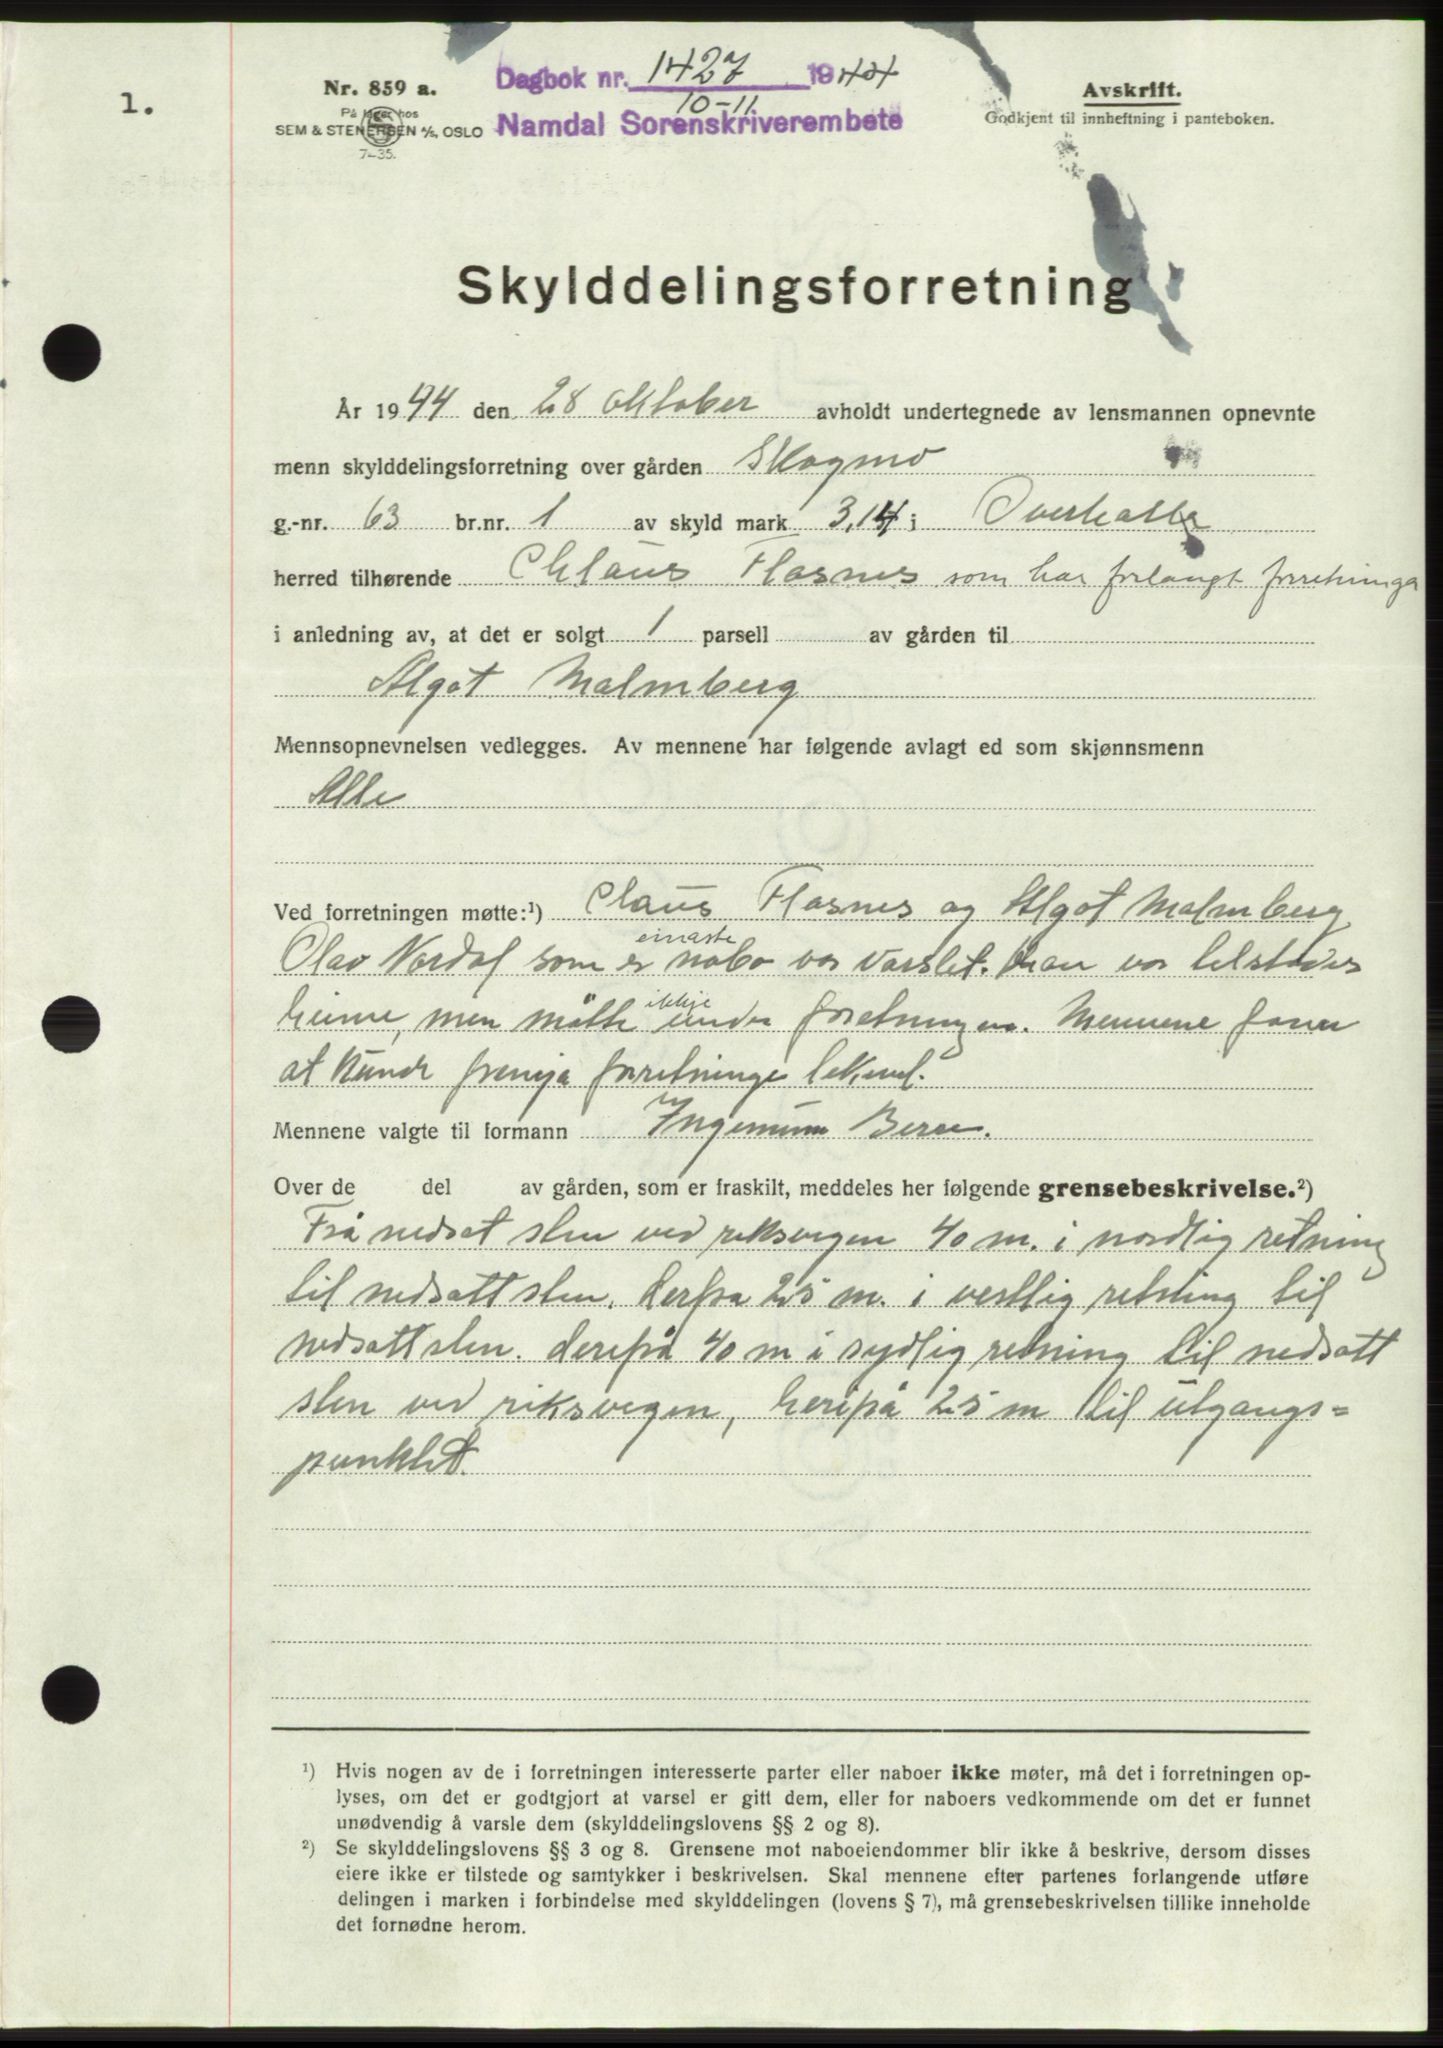 1.
Nr. 859 a.
På lager hos
SEM & STENERSEN A/S, OSLO
7-35.
Dagbok nr. 1427 1944
10-11
Namdal Sorenskriverembete
Avskrift.
Godkjent til innheftning i panteboken.
Skylddelingsforretning
År 1944 den 28 oktober avholdt undertegnede av lensmannen opnevnte
menn skylddelingsforretning over gården Skogmo
g.-nr. 63 br.nr. 1 av skyld mark 3,14 i Overhalla
herred tilhørende Chlaus Flasnes som har forlangt forretninga
i anledning av, at det er solgt 1 parsell av gården til
Algot Malmberg
Mennsopnevnelsen vedlegges. Av mennene har følgende avlagt ed som skjønnsmenn
Alle
Ved forretningen møtte:¹) Claus Flasnes og Algot Malmberg
Olav Nordal som er einaste nabo var varslet. Han var tilstades
heime, men møtte ikkje under forretningen. Mennene fann
at kunde fremja forretninga likevel.
Mennene valgte til formann Ingemunn Berre.
Over de del av gården, som er fraskilt, meddeles her følgende grensebeskrivelse.²)
Frå nedsat sten ved riksvegen 40 m. i nordlig retning
til nedsatt sten. derfra 25 m. i vestlig retning til
nedsatt sten. derepå 40 m i sydlig retning til nedsatt
sten ved riksvegen, herepå 25 m til utgangs=
punktet.
¹) Hvis nogen av de i forretningen interesserte parter eller naboer ikke møter, må det i forretningen op-
lyses, om det er godtgjort at varsel er gitt dem, eller for naboers vedkommende om det er funnet
unødvendig å varsle dem (skylddelingslovens §§ 2 og 8).
²) Se skylddelingslovens §§ 3 og 8. Grensene mot naboeiendommer blir ikke å beskrive, dersom disses
eiere ikke er tilstede og samtykker i beskrivelsen. Skal mennene efter partenes forlangende utføre
delingen i marken i forbindelse med skylddelingen (lovens § 7), må grensebeskrivelsen tillike inneholde
det fornødne herom.